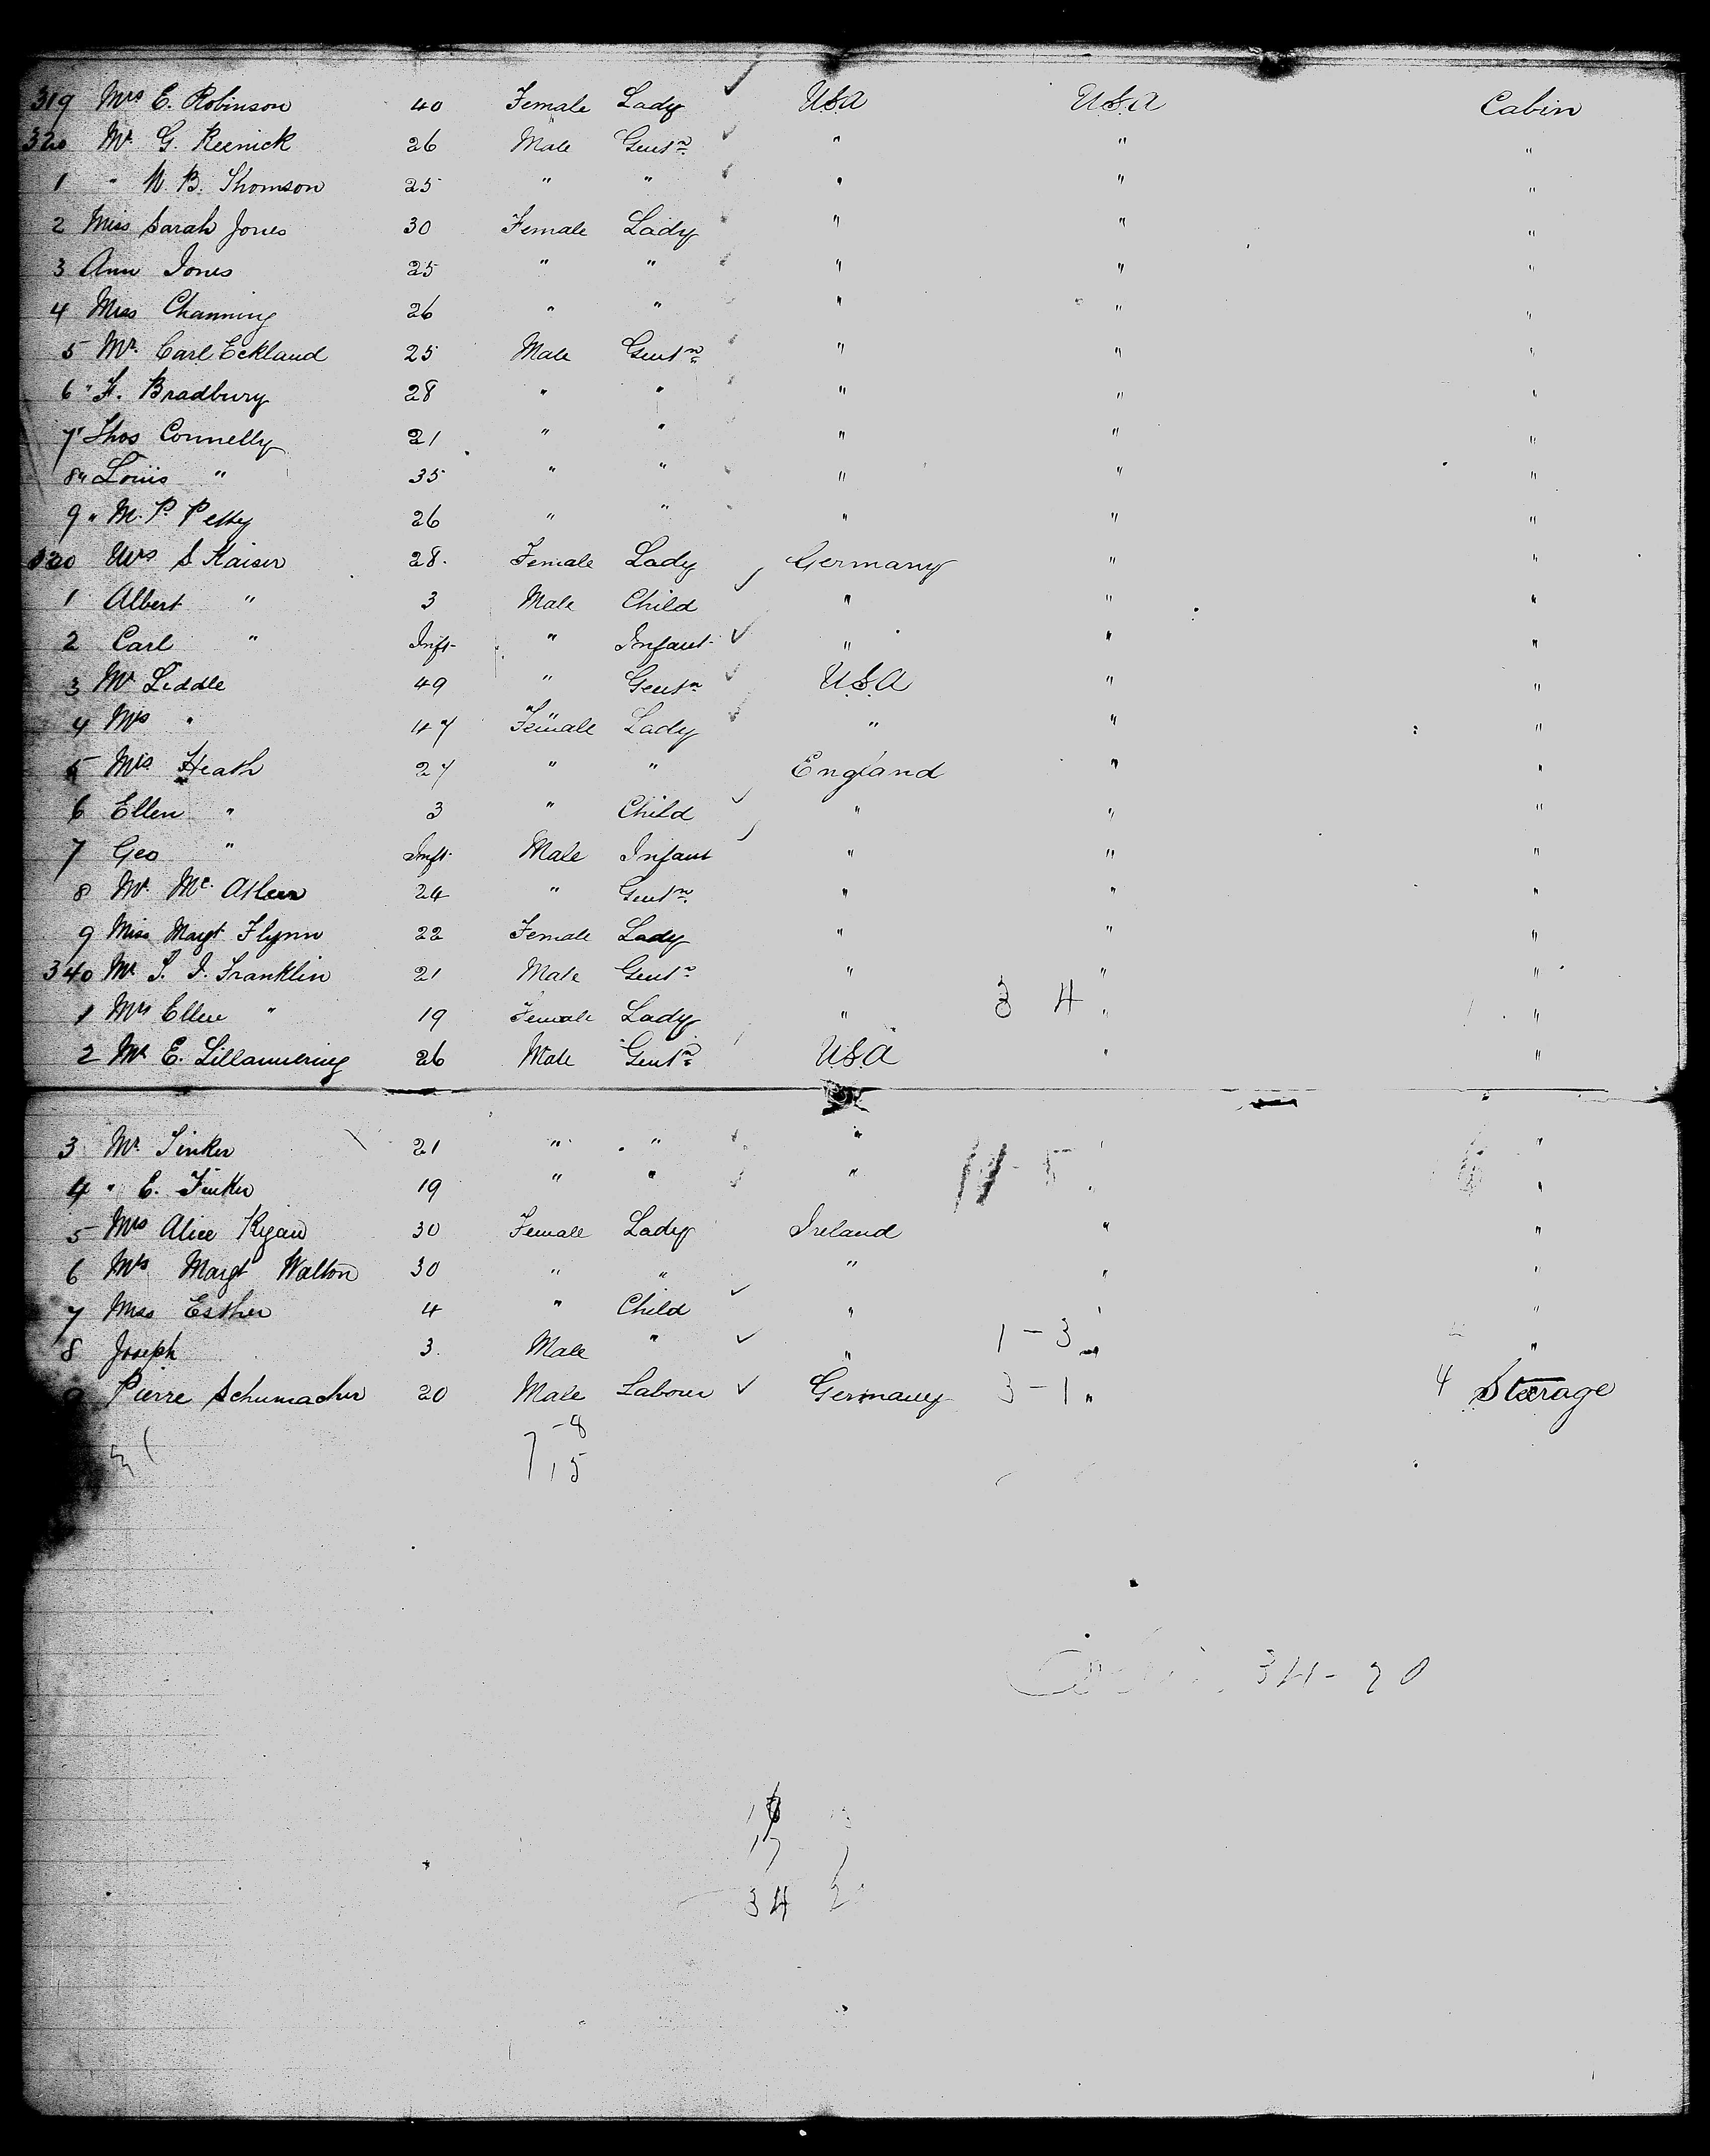 319 Mrs E. Robinson 40 Female Lady USA USA Cabin
320 Mr. G. Reenick 26 Male Gentn " " "
1 " N. B. Thomson 25 " " " " "
2 Miss Sarah Jones 30 Female Lady " " "
3 Ann Jones 25 " " " " "
4 Miss Channing 26 " " " " "
5 Mr. Carl Eckland 25 Male Gentn " " "
6 " F. Bradbury 28 " " " " "
7 " Thos Connelly 21 " " " " "
8 " Louis " 35 " " " " "
9 " M. P. Petty 26 " " " " "
320 Mrs S Kaiser 28. Female Lady Germany " "
1 Albert " 3 Male Child " " "
2 Carl " Inft " Infant " " "
3 Mr Liddle 49 " Gentn U.S.A " "
4 Mrs " 47 Female Lady " " "
5 Mrs Heath 27 " " England " "
6 Ellen " 3 " Child " " "
7 Geo " Inft Male Infant " " "
8 Mr. Mc. 24 " Gentn " " "
9 Miss Magt Flynn 22 Female Lady " " "
340 Mr. Franklin 21 Male Gentn " " "
1 Mrs Ellen " 19 Female Lady " 3 4 " "
2 Mr. E. 26 Male Gentn U.S.A " "
3 Mr. Tinker 21 " " " " "
4 " E. Tinker 19 " " " 11 - 5 " "
5 Mrs Alice Ryan 30 Female Lady Ireland " "
6 Mrs Margt Walton 30 " " " " "
7 Miss Esther 4 " Child " " "
8 Joseph 3. Male " " 1 - 3 " "
9 Pierre Schumacher 20 Male Labour Germany 3 - 1 " 4 Steerage
-8
7 15
34 - 20
17
34